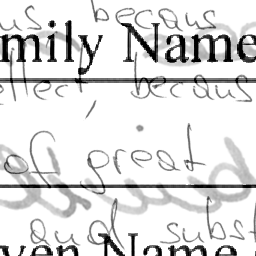 us becaus
mily Name
effect, becaus
of great
and subst
ven Name